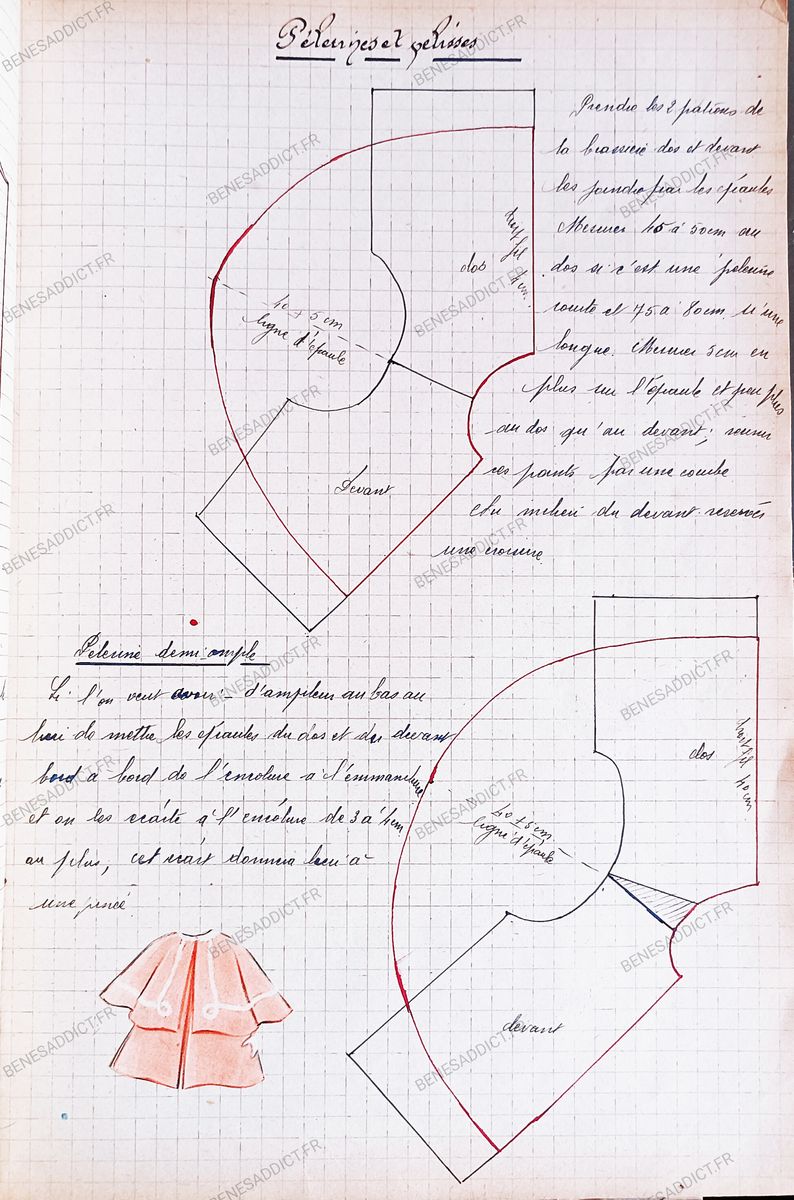 Pélerines et pelisses
Prendre les 2 patrons de
la brassière dos et devant
les joindre par les épaules
Mesurer 45 à 50cm au
dos si c'est une pélerine
courte et 75 à 80cm si une
longue. Mesurer 5cm en
plus sur l'épaule et peu plus
au dos qu'au devant; réunir
ces points par une courbe
Au milieu du devant reservés
une croisure.
dos
droit fil
40 + 5 cm
ligne d'épaule
Devant
Pelerine demi-ample
Si l'on veut avoir d'ampleur au bas au
lieu de mettre les épaules du dos et du devant
bord à bord de l'encolure à l'emmanchure
et on les écarte à l'encolure de 3 à 4cm
au plus, cet écart donnera lieu à
une pince
dos
droit fil 40cm
40 + 5cm
ligne d'épaule
devant
BENESADDICT.FR